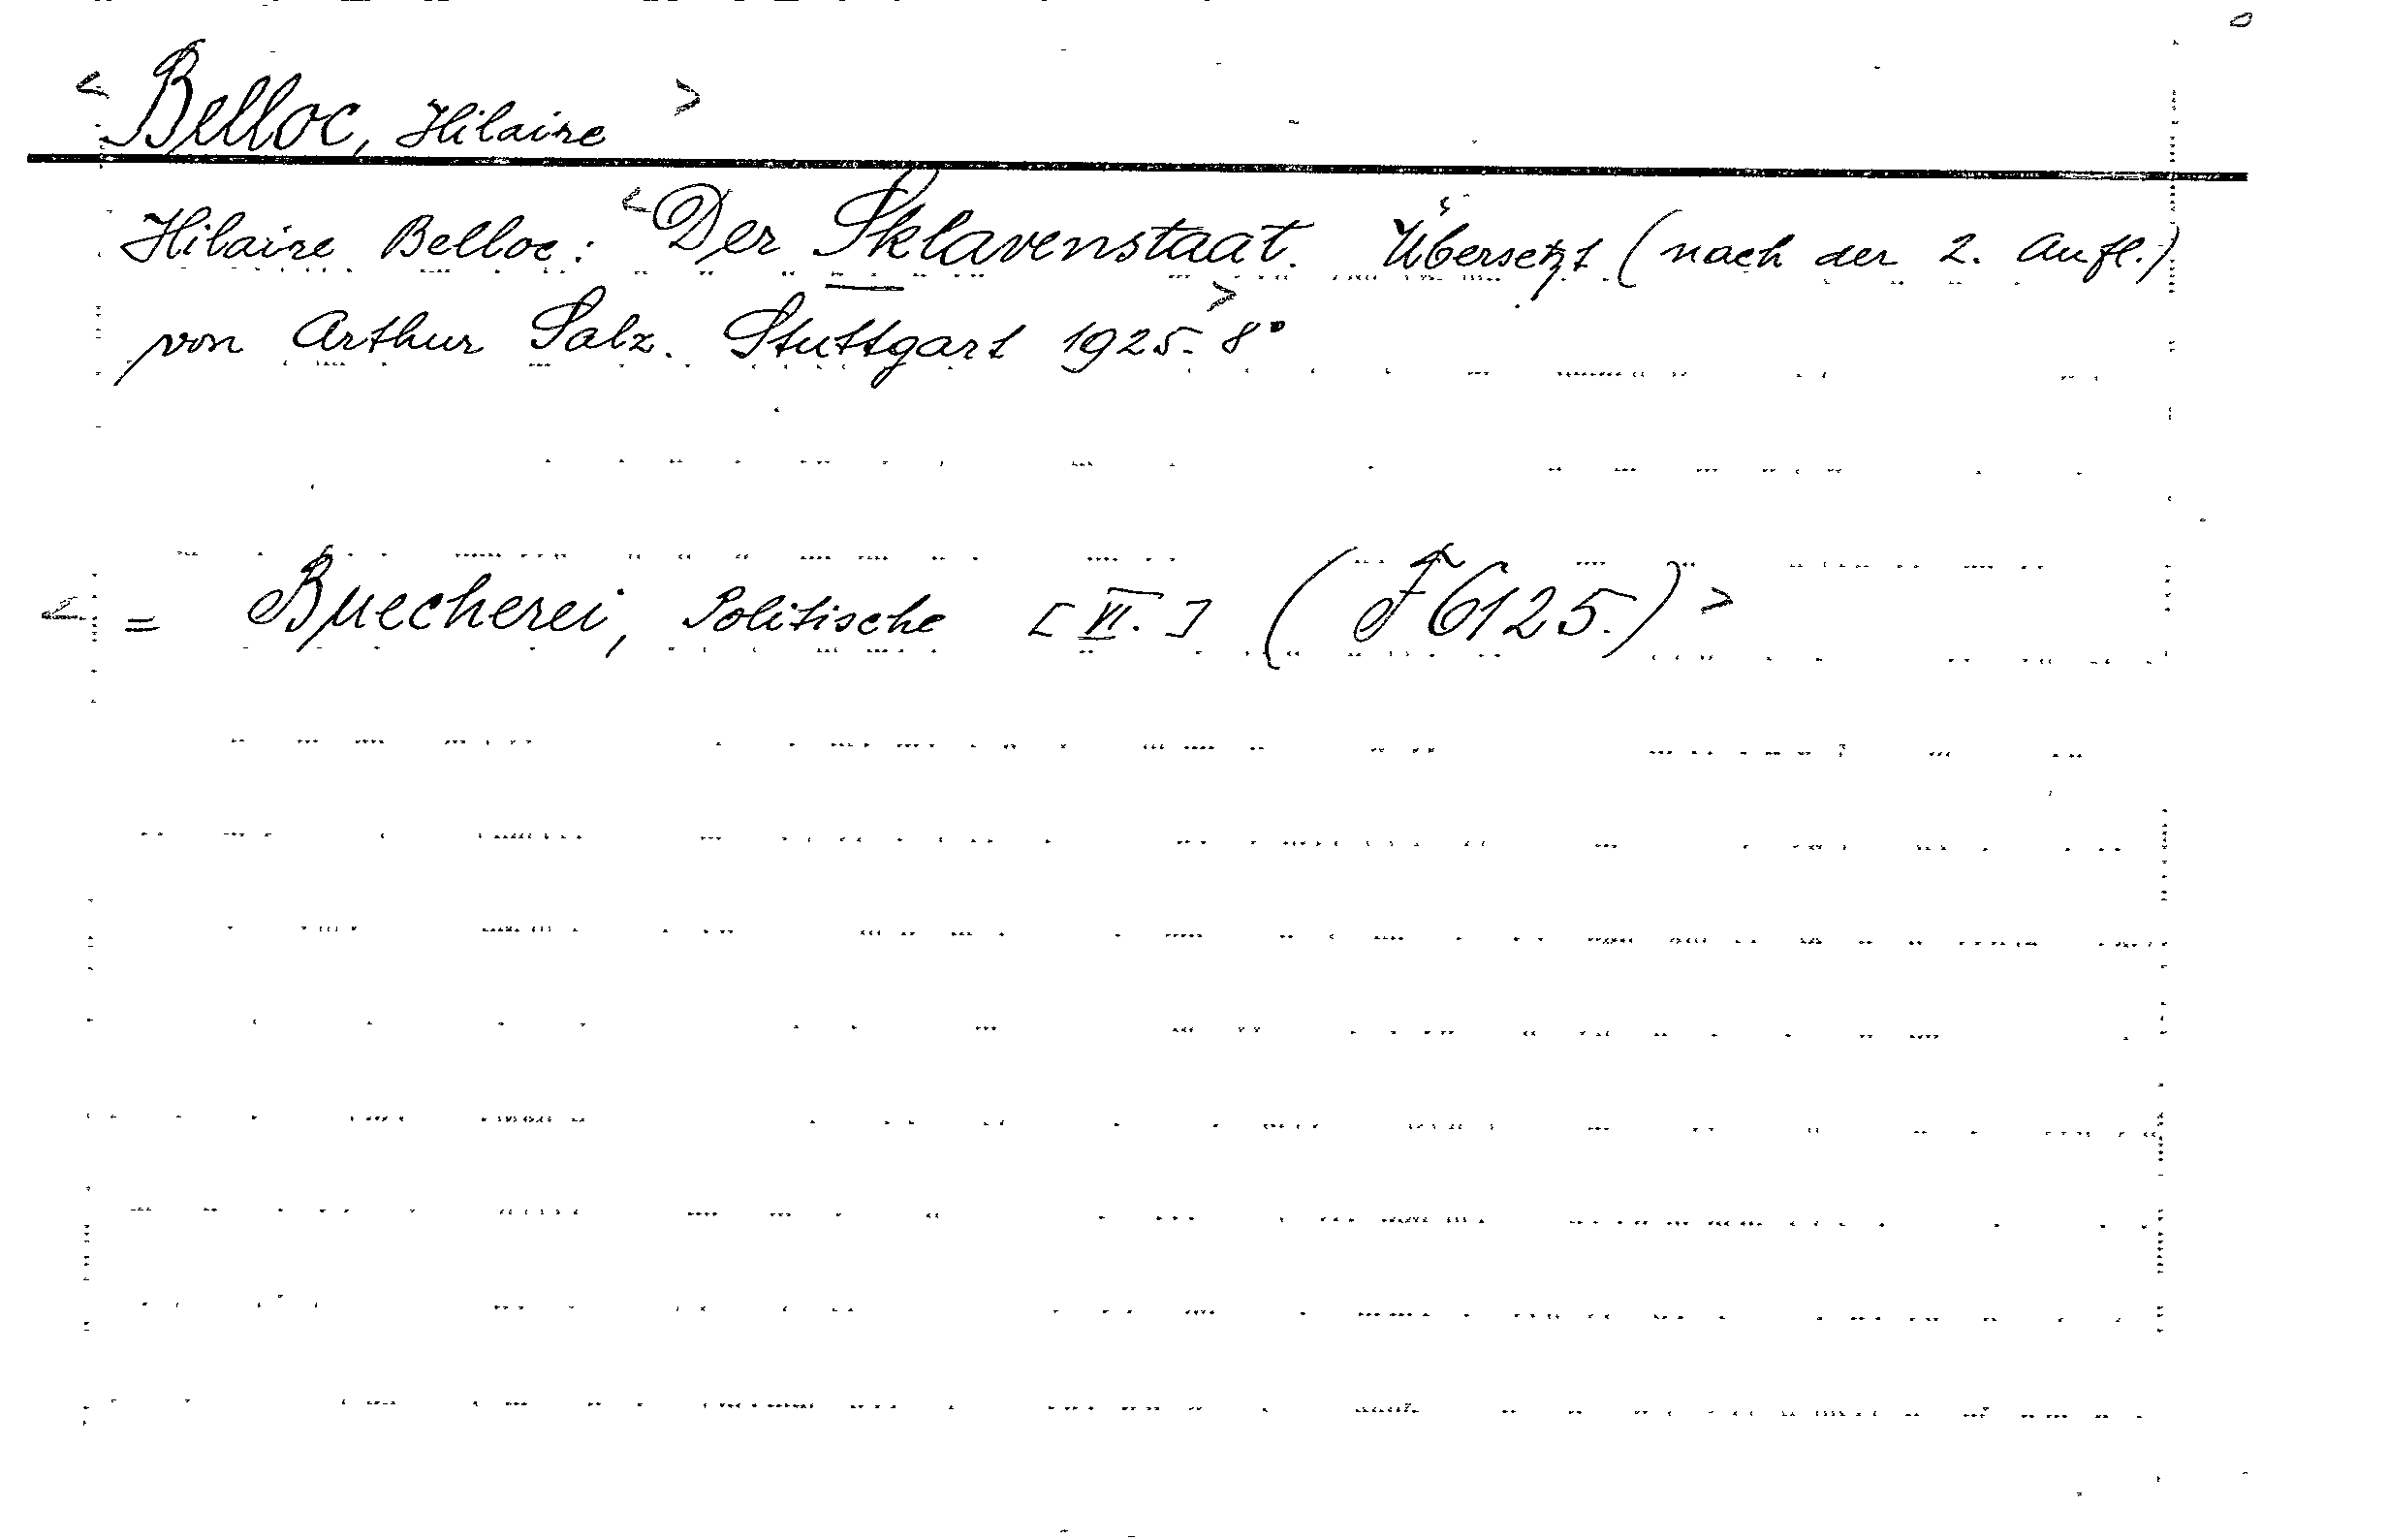 < Belloc, Hilaire >
Hilaire Belloc: < Der Sklavenstaat. Übersetzt (nach der 2. Aufl.)
von Arthur Salz. Stuttgart 1925. > 8°
< = Buecherei, Politische [VI.] (F6125.) >